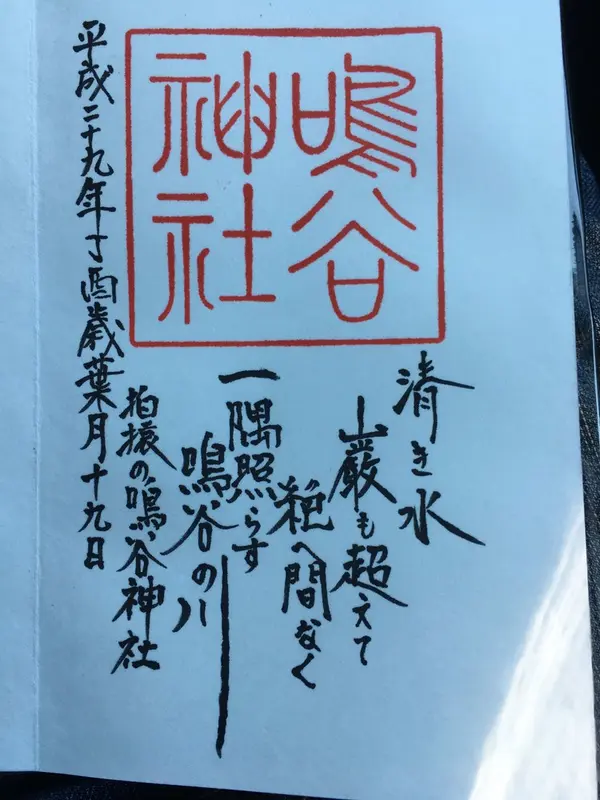 鳴谷
神社
清き水
巌も超えて
絶へ間なく
一隅照らす
鳴谷の川
の鳴谷神社
平成二十九年丁酉歳葉月十九日